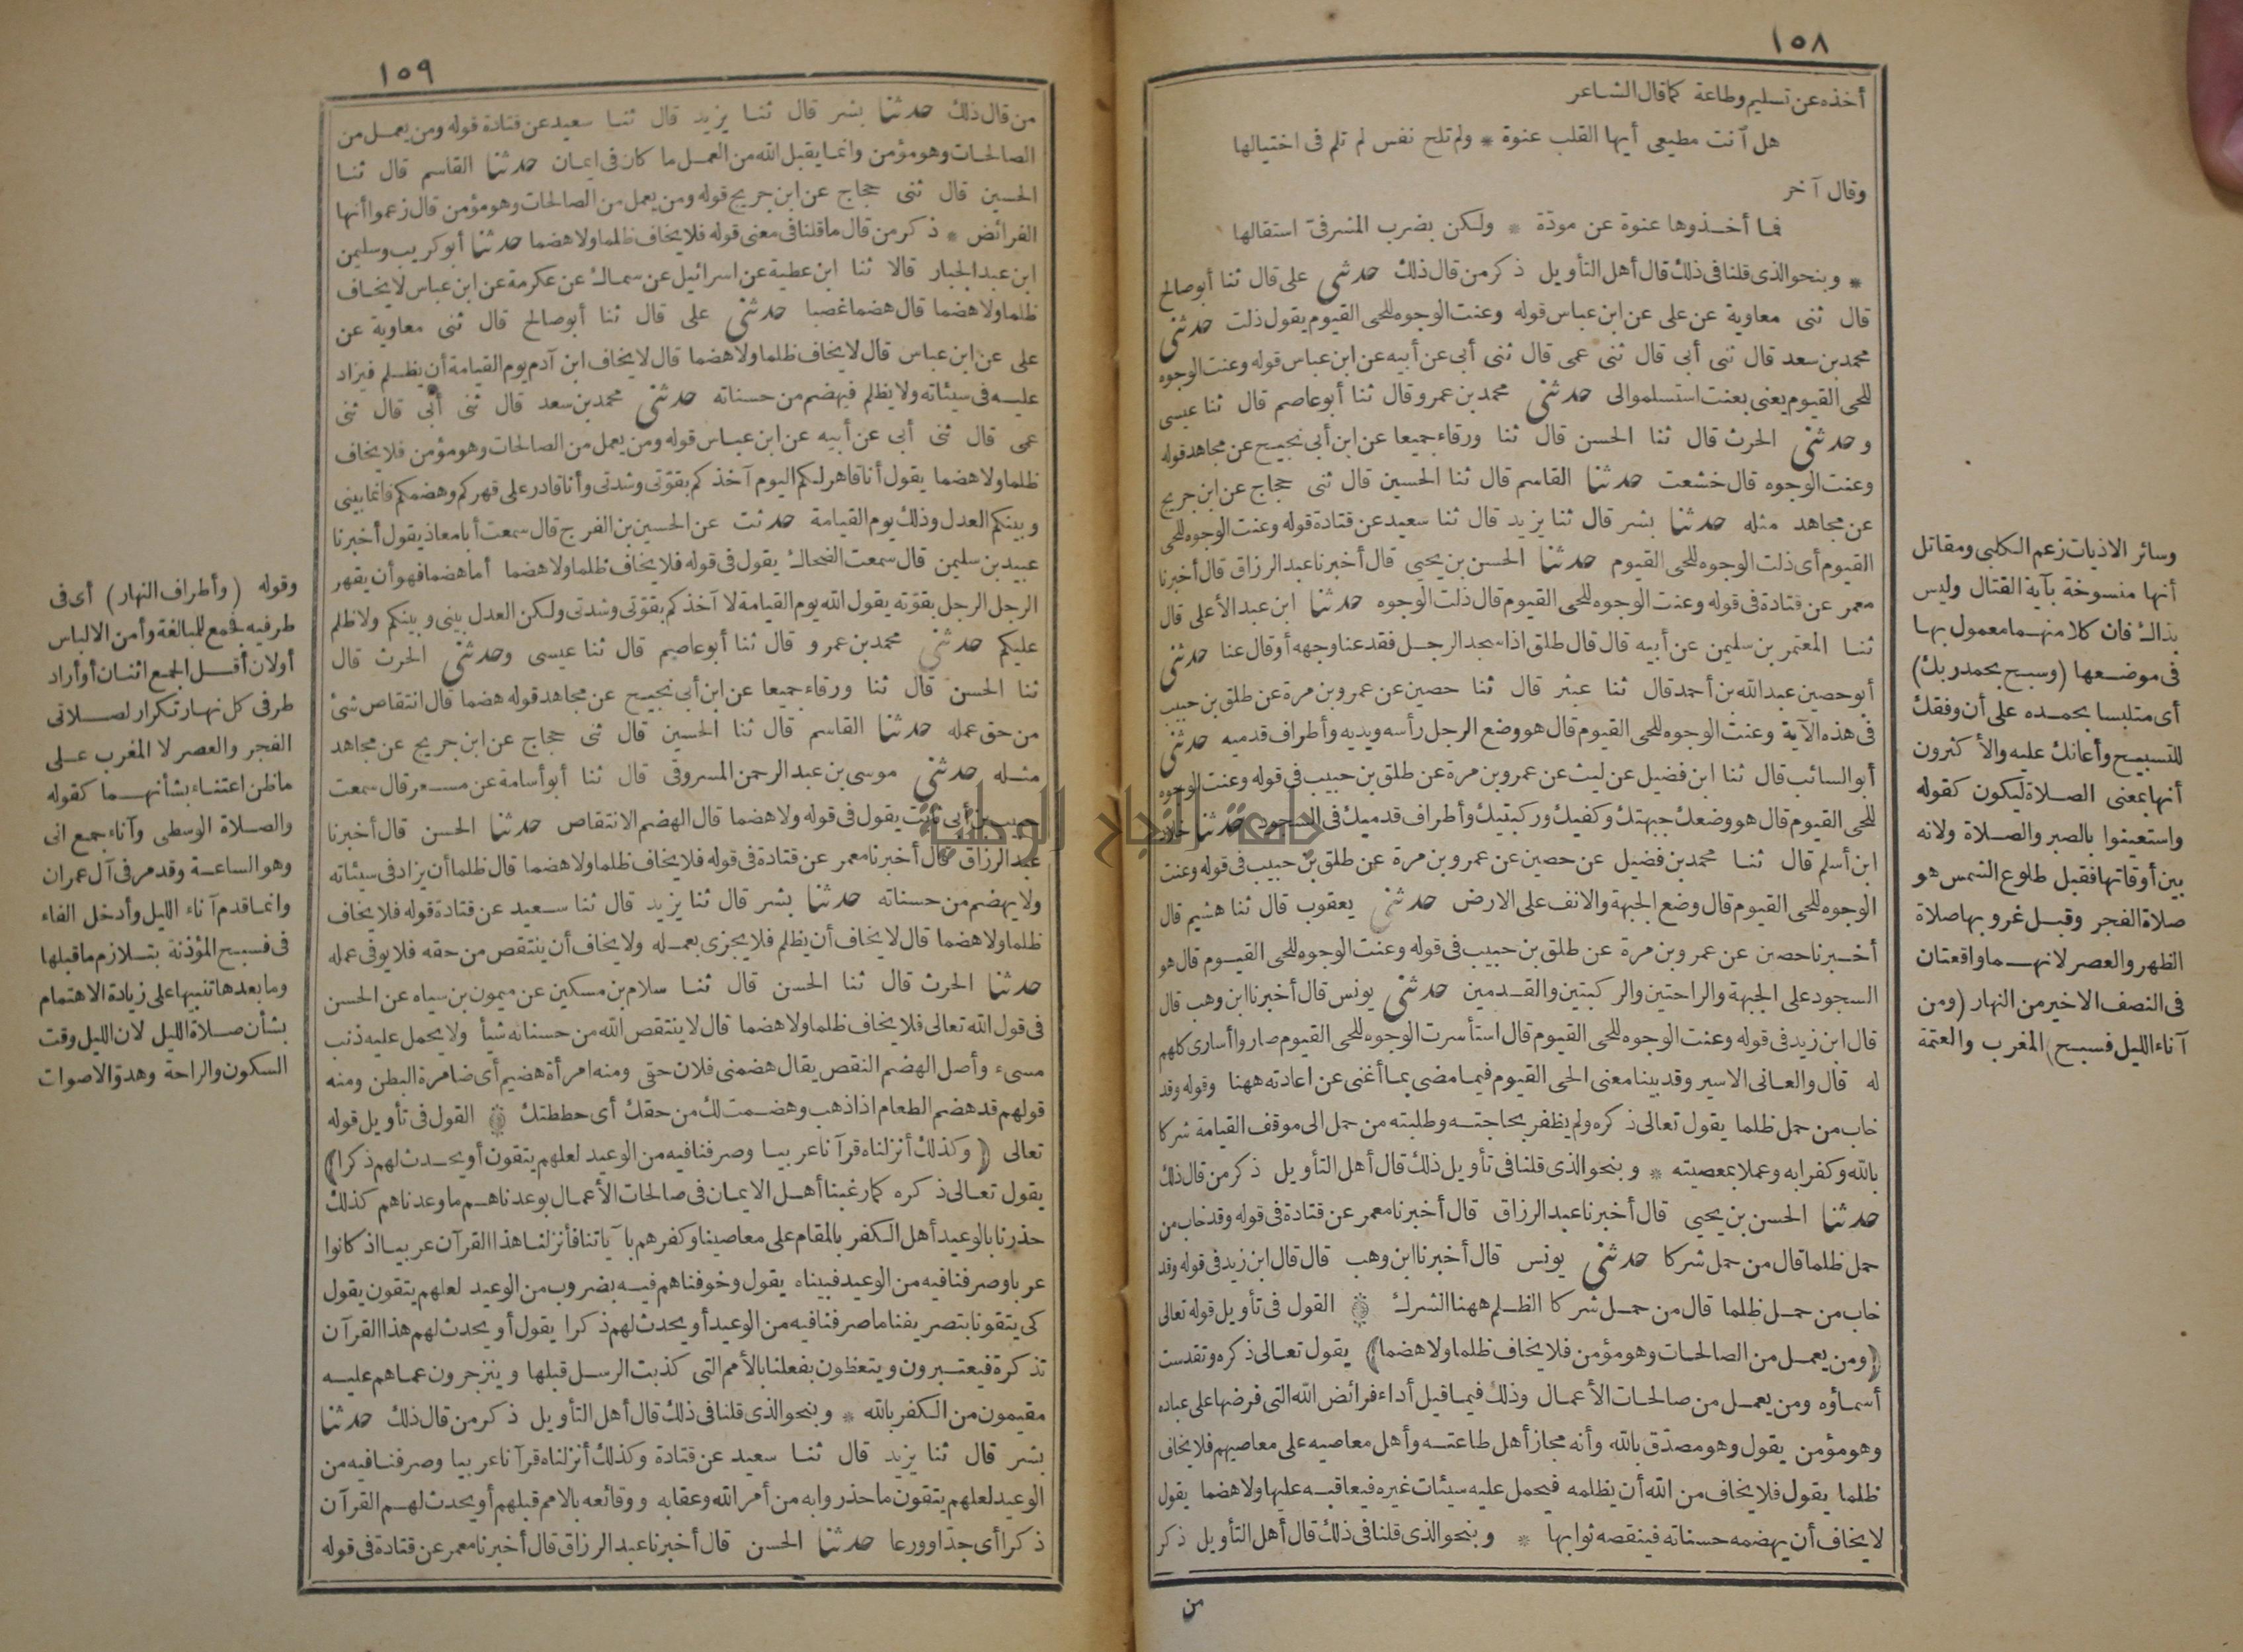 ١٥٨
أخذه عن تسليم وطاعة كما قال الشاعر
هل آنت مطيعى أيها القلب عنوة * ولم تلح نفس لم تلم فى اختيالها
وقال آخر
فما أخذوها عنوة عن مودّة * ولكن بضرب المشرفىّ استقالها
* وبنحو الذى قلنا فى ذلك قال أهل التأويل ذكر من قال ذلك حدثنى على قال ثنا أبو صالح
قال ثنى معاوية عن على عن ابن عباس قوله وعنت الوجوه للحى القيوم يقول ذلت حدثنى
محمد بن سعد قال ثنى أبى قال ثنى عمى قال ثنى أبى عن أبيه عن ابن عباس قوله وعنت الوجوه
للحى القيوم يعنى بعنت استسلموا لى حدثنى محمد بن عمرو قال ثنا أبو عاصم قال ثنا عيسى
وحدثنى الحرث قال ثنا الحسن قال ثنا ورقاء جميعا عن ابن أبى نجيح عن مجاهد قوله
وعنت الوجوه قال خشعت حدثنا القاسم قال ثنا الحسين قال ثنى حجاج عن ابن جريج
عن مجاهد مثله حدثنا بشر قال ثنا يزيد قال ثنا سعيد عن قتادة قوله وعنت الوجوه للحى
القيوم أى ذلت الوجوه للحى القيوم حدثنا الحسن بن يحيى قال أخبرنا عبد الرزاق قال أخبرنا
معمر عن قتادة فى قوله وعنت الوجوه للحى القيوم قال ذلت الوجوه حدثنا ابن عبد الأعلى قال
ثنا المعتمر بن سليمن عن أبيه قال قال طلق اذا سجد الرجل فقد عنا وجهه أو قال عنا حدثنى
أبو حصين عبد الله بن أحمد قال ثنا عبثر قال ثنا حصين عن عمرو بن مرة عن طلق بن حبيب
فى هذه الآية وعنت الوجوه للحى القيوم قال هو وضع الرجل رأسه ويديه وأطراف قدميه حدثنى
أبو السائب قال ثنا ابن فضيل عن ليث عن عمرو بن مرة عن طلق بن حبيب فى قوله وعنت الوجوه
للحى القيوم قال هو وضعك جبهتك وكفيك وركبتيك وأطراف قدميك فى السجود حدثنا خلاد
ابن أسلم قال ثنا محمد بن فضيل عن حصين عن عمرو بن مرة عن طلق بن حبيب فى قوله وعنت
الوجوه للحى القيوم قال وضع الجبهة والانف على الارض حدثنى يعقوب قال ثنا هشيم قال
أخبرنا حصين عن عمرو بن مرة عن طلق بن حبيب فى قوله وعنت الوجوه للحى القيوم قال هو
السجود على الجبهة والراحتين والركبتين والقدمين حدثنى يونس قال أخبرنا ابن وهب قال
قال ابن زيد فى قوله وعنت الوجوه للحى القيوم قال استأسرت الوجوه للحى القيوم صاروا أسارى كلهم
له قال والعانى الاسير وقد بينا معنى الحى القيوم فيما مضى بما أغنى عن اعادته ههنا وقوله وقد
خاب من حمل ظلما يقول تعالى ذكره ولم يظفر بحاجته وطلبته من حمل الى موقف القيامة شركا
بالله وكفرا به وعملا بمعصيته * وبنحو الذى قلنا فى تأويل ذلك قال أهل التأويل ذكر من قال ذلك
حدثنا الحسن بن يحيى قال أخبرنا عبد الرزاق قال أخبرنا معمر عن قتادة فى قوله وقد خاب من
حمل ظلما قال من حمل شركا حدثنى يونس قال أخبرنا ابن وهب قال قال ابن زيد فى قوله وقد
خاب من حمل ظلما قال من حمل شركا الظلم ههنا الشرك القول فى تأويل قوله تعالى
(ومن يعمل من الصالحات وهو مؤمن فلا يخاف ظلما ولا هضما) يقول تعالى ذكره وتقدست
أسماؤه ومن يعمل من صالحات الأعمال وذلك فيما قيل أداء فرائض الله التى فرضها على عباده
وهو مؤمن يقول وهو مصدّق بالله وأنه مجاز أهل طاعته وأهل معاصيه على معاصيهم فلا يخاف
ظلما يقول فلا يخاف من الله أن يظلمه فيحمل عليه سيئات غيره فيعاقبه عليها ولا هضما يقول
لا يخاف أن يهضمه حسناته فينقصه ثوابها * وبنحو الذى قلنا فى ذلك قال أهل التأويل ذكر
من
وسائر الاذيات زعم الكلبى ومقاتل
أنها منسوخة بآية القتال وليس
بذاك فان كلا منهما معمول بها
فى موضعها (وسبح بحمد ربك)
أى متلبسا بحمده على أن وفقك
للتسبيح وأعانك عليه والأكثرون
أنها بمعنى الصلاة ليكون كقوله
واستعينوا بالصبر والصلاة ولانه
بين أوقاتها فقبل طلوع الشمس هو
صلاة الفجر وقبل غروبها صلاة
الظهر والعصر لانهما واقعتان
فى النصف الاخير من النهار (ومن
آناء الليل فسبح) المغرب والعتمة
١٥٩
من قال ذلك حدثنا بشر قال ثنا يزيد قال ثنا سعيد عن قتادة قوله ومن يعمل من
الصالحات وهو مؤمن وانما يقبل الله من العمل ما كان فى ايمان حدثنا القاسم قال ثنا
الحسين قال ثنى حجاج عن ابن جريج قوله ومن يعمل من الصالحات وهو مؤمن قال زعموا أنها
الفرائض * ذكر من قال ما قلنا فى معنى قوله فلا يخاف ظلما ولا هضما حدثنا أبو كريب وسليمن
ابن عبد الجبار قالا ثنا ابن عطية عن اسرائيل عن سماك عن عكرمة عن ابن عباس لا يخاف
ظلما ولا هضما قال هضما غصبا حدثنى على قال ثنا أبو صالح قال ثنى معاوية عن
على عن ابن عباس قال لا يخاف ظلما ولا هضما قال لا يخاف ابن آدم يوم القيامة أن يظلم فيزاد
عليه فى سيئاته ولا يظلم فيهضم من حسناته حدثنى محمد بن سعد قال ثنى أبى قال ثنى
عمى قال ثنى أبى عن أبيه عن ابن عباس قوله ومن يعمل من الصالحات وهو مؤمن فلا يخاف
ظلما ولا هضما يقول أنا قاهر لكم اليوم آخذكم بقوّتى وشدتى وأنا قادر على قهركم وهضمكم فانما بينى
وبينكم العدل وذلك يوم القيامة حدثت عن الحسين بن الفرج قال سمعت أبا معاذ يقول أخبرنا
عبيد بن سليمن قال سمعت الضحاك يقول فى قوله فلا يخاف ظلما ولا هضما أما هضما فهو أن يقهر
الرجل الرجل بقوّته يقول الله يوم القيامة لا آخذكم بقوّتى وشدتى ولكن العدل بينى وبينكم ولا ظلم
عليكم حدثنى محمد بن عمرو قال ثنا أبو عاصم قال ثنا عيسى وحدثنى الحرث قال
ثنا الحسن قال ثنا ورقاء جميعا عن ابن أبى نجيح عن مجاهد قوله هضما قال انتقاص شئ
من حق عمله حدثنا القاسم قال ثنا الحسين قال ثنى حجاج عن ابن جريج عن مجاهد
مثله حدثنى موسى بن عبد الرحمن المسروقى قال ثنا أبو أسامة عن مسعر قال سمعت
حبيب بن أبى ثابت يقول فى قوله ولا هضما قال الهضم الانتقاص حدثنا الحسن قال أخبرنا
عبد الرزاق قال أخبرنا معمر عن قتادة فى قوله فلا يخاف ظلما ولا هضما قال ظلما أن يزاد فى سيئاته
ولا يهضم من حسناته حدثنا بشر قال ثنا يزيد قال ثنا سعيد عن قتادة قوله فلا يخاف
ظلما ولا هضما قال لا يخاف أن يظلم فلا يجزى بعمله ولا يخاف أن ينتقص من حقه فلا يوفى عمله
حدثنا الحرث قال ثنا الحسن قال ثنا سلام بن مسكين عن ميمون بن سياه عن الحسن
فى قول الله تعالى فلا يخاف ظلما ولا هضما قال لا ينتقص الله من حسناته شيأ ولا يحمل عليه ذنب
مسىء وأصل الهضم النقص يقال هضمنى فلان حقى ومنه امرأة هضيم أى ضامرة البطن ومنه
قولهم قد هضم الطعام اذا ذهب وهضمت لك من حقك أى حططتك القول فى تأويل قوله
تعالى (وكذلك أنزلناه قرآنا عربيا وصرفنا فيه من الوعيد لعلهم يتقون أو يحدث لهم ذكرا)
يقول تعالى ذكره كما رغبنا أهل الايمان فى صالحات الأعمال بوعدناهم ما وعدناهم كذلك
حذرنا بالوعيد أهل الكفر بالمقام على معاصينا وكفرهم بآياتنا فأنزلنا هذا القرآن عربيا اذ كانوا
عربا وصرفنا فيه من الوعيد فبيناه يقول وخوفناهم فيه بضروب من الوعيد لعلهم يتقون يقول
كى يتقونا بتصريفنا ما صرفنا فيه من الوعيد أو يحدث لهم ذكرا يقول أو يحدث لهم هذا القرآن
تذكرة فيعتبرون ويتعظون بفعلنا بالأمم التى كذبت الرسل قبلها وينزجرون عما هم عليه
مقيمون من الكفر بالله * وبنحو الذى قلنا فى ذلك قال أهل التأويل ذكر من قال ذلك حدثنا
بشر قال ثنا يزيد قال ثنا سعيد عن قتادة وكذلك أنزلناه قرآنا عربيا وصرفنا فيه من
الوعيد لعلهم يتقون ما حذروا به من أمر الله وعقابه ووقائعه بالامم قبلهم أو يحدث لهم القرآن
ذكرا أى جدّا وورعا حدثنا الحسن قال أخبرنا عبد الرزاق قال أخبرنا معمر عن قتادة فى قوله
وقوله (وأطراف النهار) أى فى
طرفيه فجمع للمبالغة وأمن الالباس
أو لان أقل الجمع اثنان أو أراد
طرفى كل نهار تكرار لصلاتى
الفجر والعصر لا المغرب على
ما ظن اعتناء بشأنهما كقوله
والصلاة الوسطى وآناء جمع انى
وهو الساعة وقد مر فى آل عمران
وانما قدم آناء الليل وأدخل الفاء
فى فسبح المؤذنة بتلازم ما قبلها
وما بعدها تنبيها على زيادة الاهتمام
بشأن صلاة الليل لان الليل وقت
السكون والراحة وهدوّ الاصوات
جامعة النجاح الوطنية